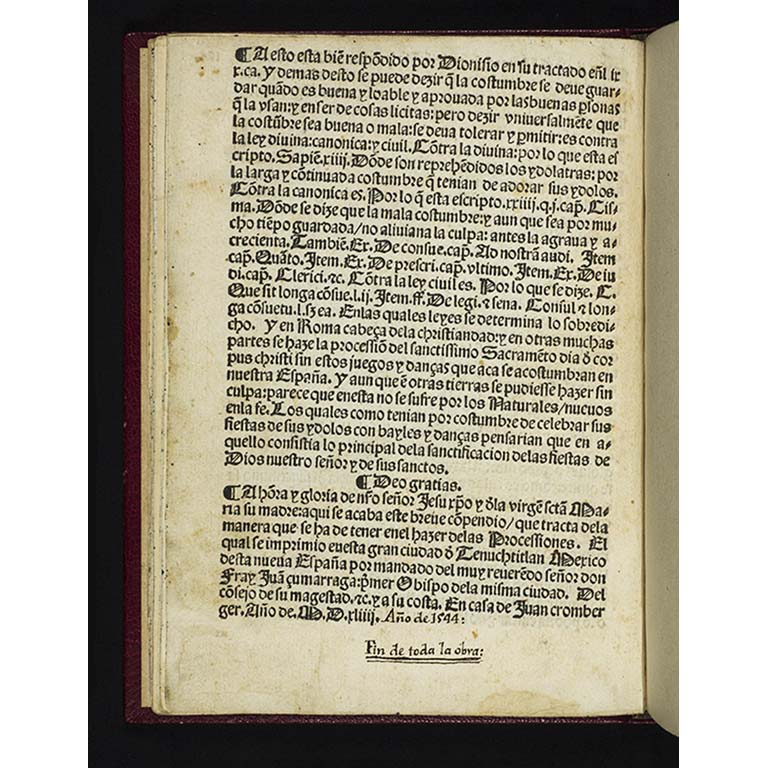 ¶ A esto esta biẽ respõdido por Dionisio en su tractado eñl ix
x.ca. Y demas desto se puede dezir q̃ la costumbre se deue guar-
dar quãdo es buena y loable y aprouada por las buenas p̃sonas
q̃ la vsan: y en ser de cosas licitas: pero dezir vniuersalmẽte que
la costũbre sea buena o mala: se deua tolerar y p̃mitir: es contra
la ley diuina: canonica: y ciuil. Cõtra la diuina: por lo que esta es
cripto. Sapiẽ.xiiij. Dõde son reprehẽdidos los ydolatras: por
la larga y cõtinuada costumbre q̃ tenian de adorar sus ydolos.
Cõtra la canonica es. Por lo q̃ esta escripto.xxiiij.q.j.cap̃. Cis-
ma. Dõde se dize que la mala costumbre: y aun que sea por mu-
cho tiẽpo guardada/no aliuiana la culpa: antes la agraua y a-
crecienta. Tambiẽ. Ex. De consue.cap̃. Ad nostrã audi. Item
cap̃. Quãto. Item. Ex. De prescri.cap̃.vltimo. Item. Ex. De iu
di.cap̃. Clerici.⁊c. Cõtra la ley ciuil es. Por lo que se dize. C.
Que sit longa cõsue.l.ij. Item.ff. De legi.⁊ sena. Consul.⁊ lon-
ga cõsuetu.l. Enlas quales leyes se determina lo sobredi-
cho. Y en Roma cabeça dela christiandad: y en otras muchas
partes se haze la processiõ del sanctissimo Sacramẽto dia õ cor
pus christi sin estos juegos y danças que aca se acostumbran en
nuestra España. Y aun que ẽ otras tierras se pudiesse hazer sin
culpa: parece que enesta no se sufre por los Naturales/nueuos
enla fe. Los quales como tenian por costumbre de celebrar sus
fiestas de sus ydolos con bayles y danças pensarian que en a-
quello consistia lo principal dela sanctificacion delas fiestas de
Dios nuestro señor y de sus sanctos.
¶ Deo gratias.
¶ A hõra y gloria de nr̃o señor Jesu xp̃o y õla virgẽ sctã Ma-
ria su madre: aqui se acaba este breue cõpendio/que tracta dela
manera que se ha de tener enel hazer delas Processiones. El
qual se imprimio euesta gran ciudad õ Tenuchtitlan Mexico
desta nueua España por mandado del muy reuerẽdo señor don
Fray Juã çumarraga: p̃mer Obispo dela misma ciudad. Del
cõsejo de su magestad.⁊c.y a su costa. En casa de Juan cromber
ger. Año de.M.D.xliiij. Año de 1544:
Fin de toda la obra: